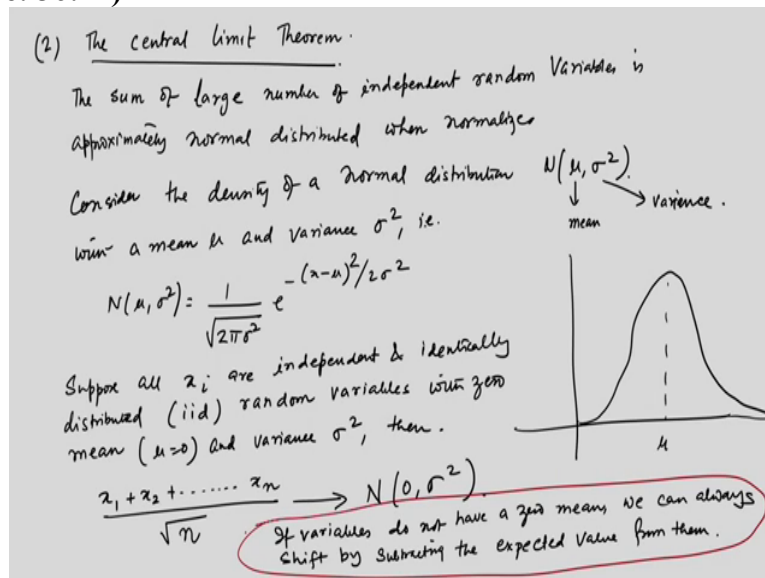 (2) The central limit Theorem.
The sum of large number of independent random variables is
approximately normal distributed when normalizes
Consider the density of a normal distribution N(μ, σ²).
mean
varience.
with a mean μ and variance σ², i.e.
N(μ, σ²) = 1/√(2πσ²) e^-(x-μ)²/2σ²
Suppose all xᵢ are independent & identically
distributed (iid) random variables with zero
mean (μ=0) and variance σ², then.
μ
x₁ + x₂ + ....... xₙ / √n → N(0, σ²).
If variables do not have a zero mean, we can always
shift by subtracting the expected value from them.